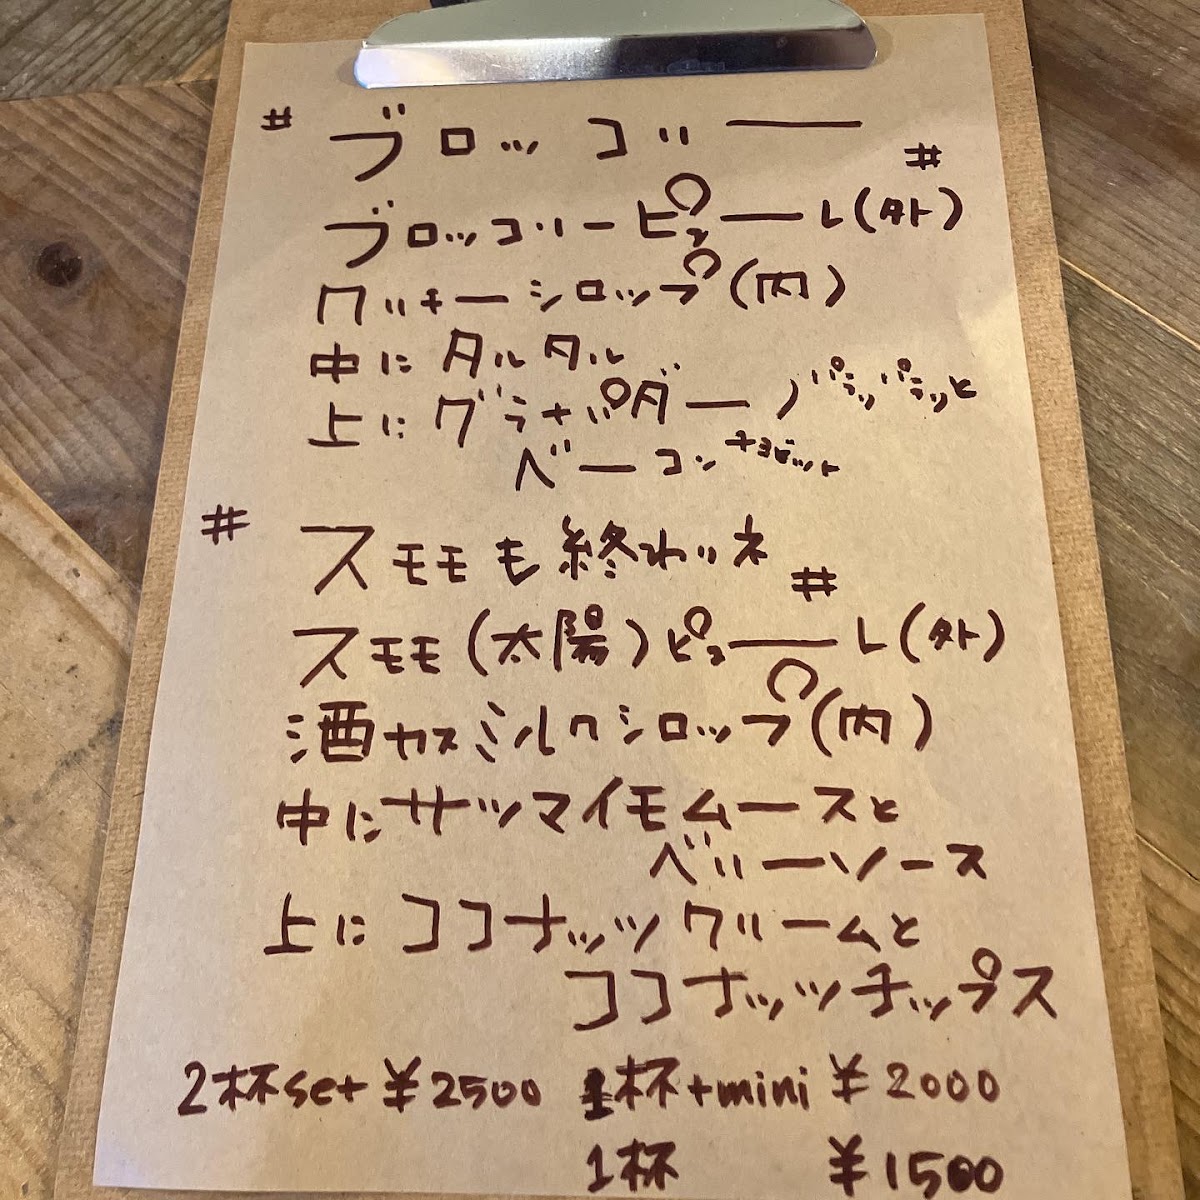 # ブロッコリー #
ブロッコリーピューレ(外)
クリーチーシロップ(内)
中にタルタル
上にグラナパダーノパラッパラッと
ベーコンチョビット
# スモモも終わりネ #
スモモ(太陽)ピューレ(外)
酒カスミルクシロップ(内)
中にサツマイモムースと
ベリーソース
上にココナッツクリームと
ココナッツチップス
2杯set ¥2500 1杯+mini ¥2000
1杯 ¥1500